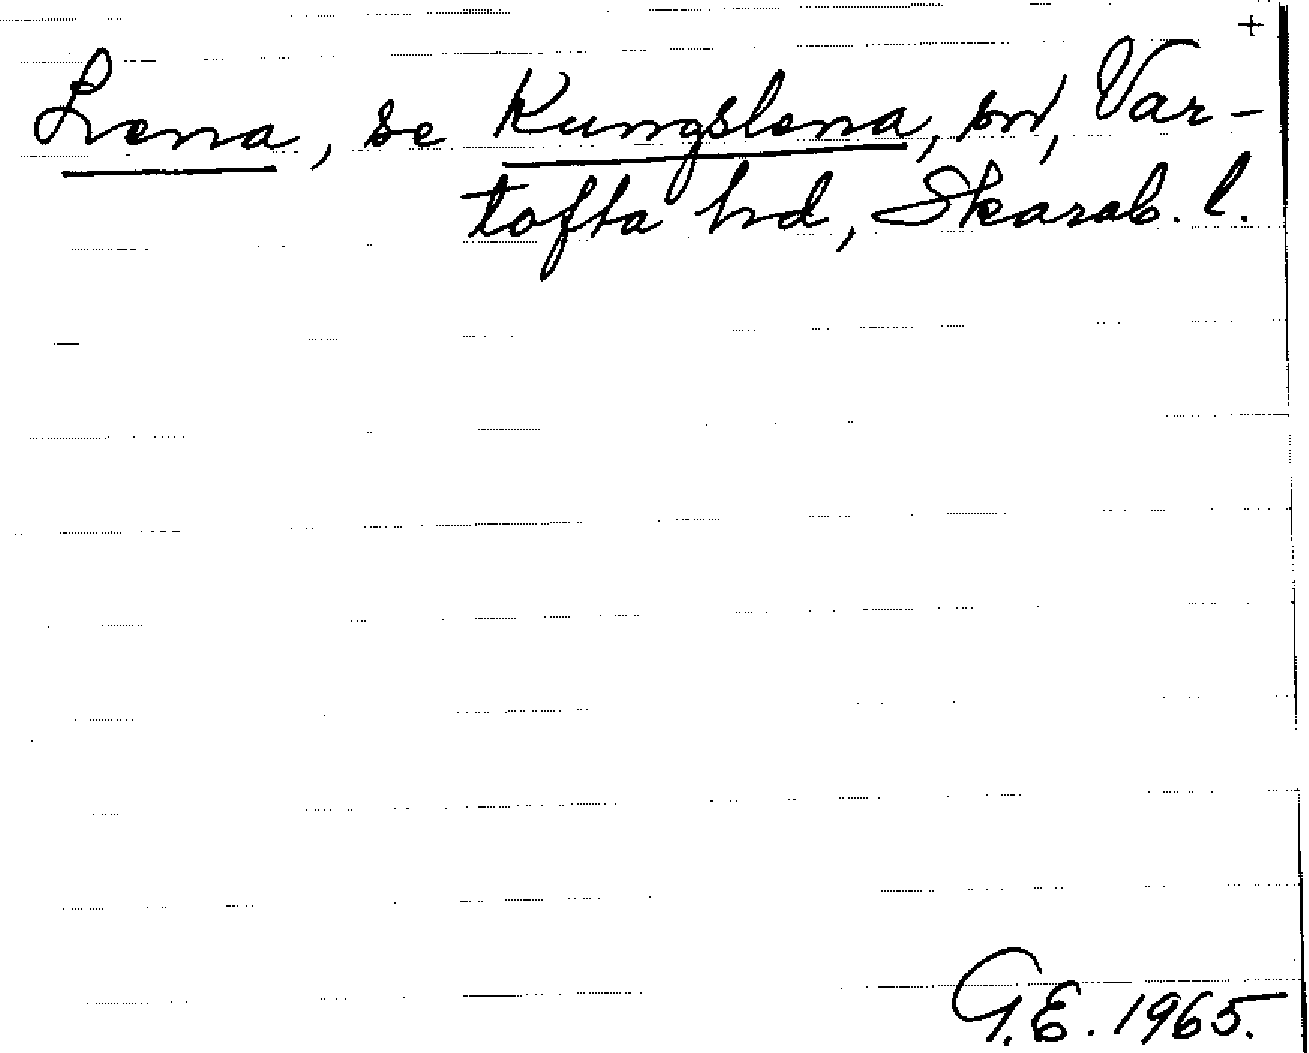 +
Lena, se Kungslena, sn, Var-
tofta hd, Skarab. l.
G.E. 1965.